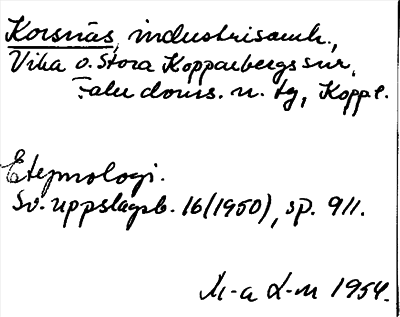 Korsnäs, industrisamh.,
Vika o. Stora Kopparbergs snr,
Falu doms. n. tg, Kopp. l.
Etymologi.
Sv. uppslagsb. 16(1950), sp. 911.
M-a L-m 1954.